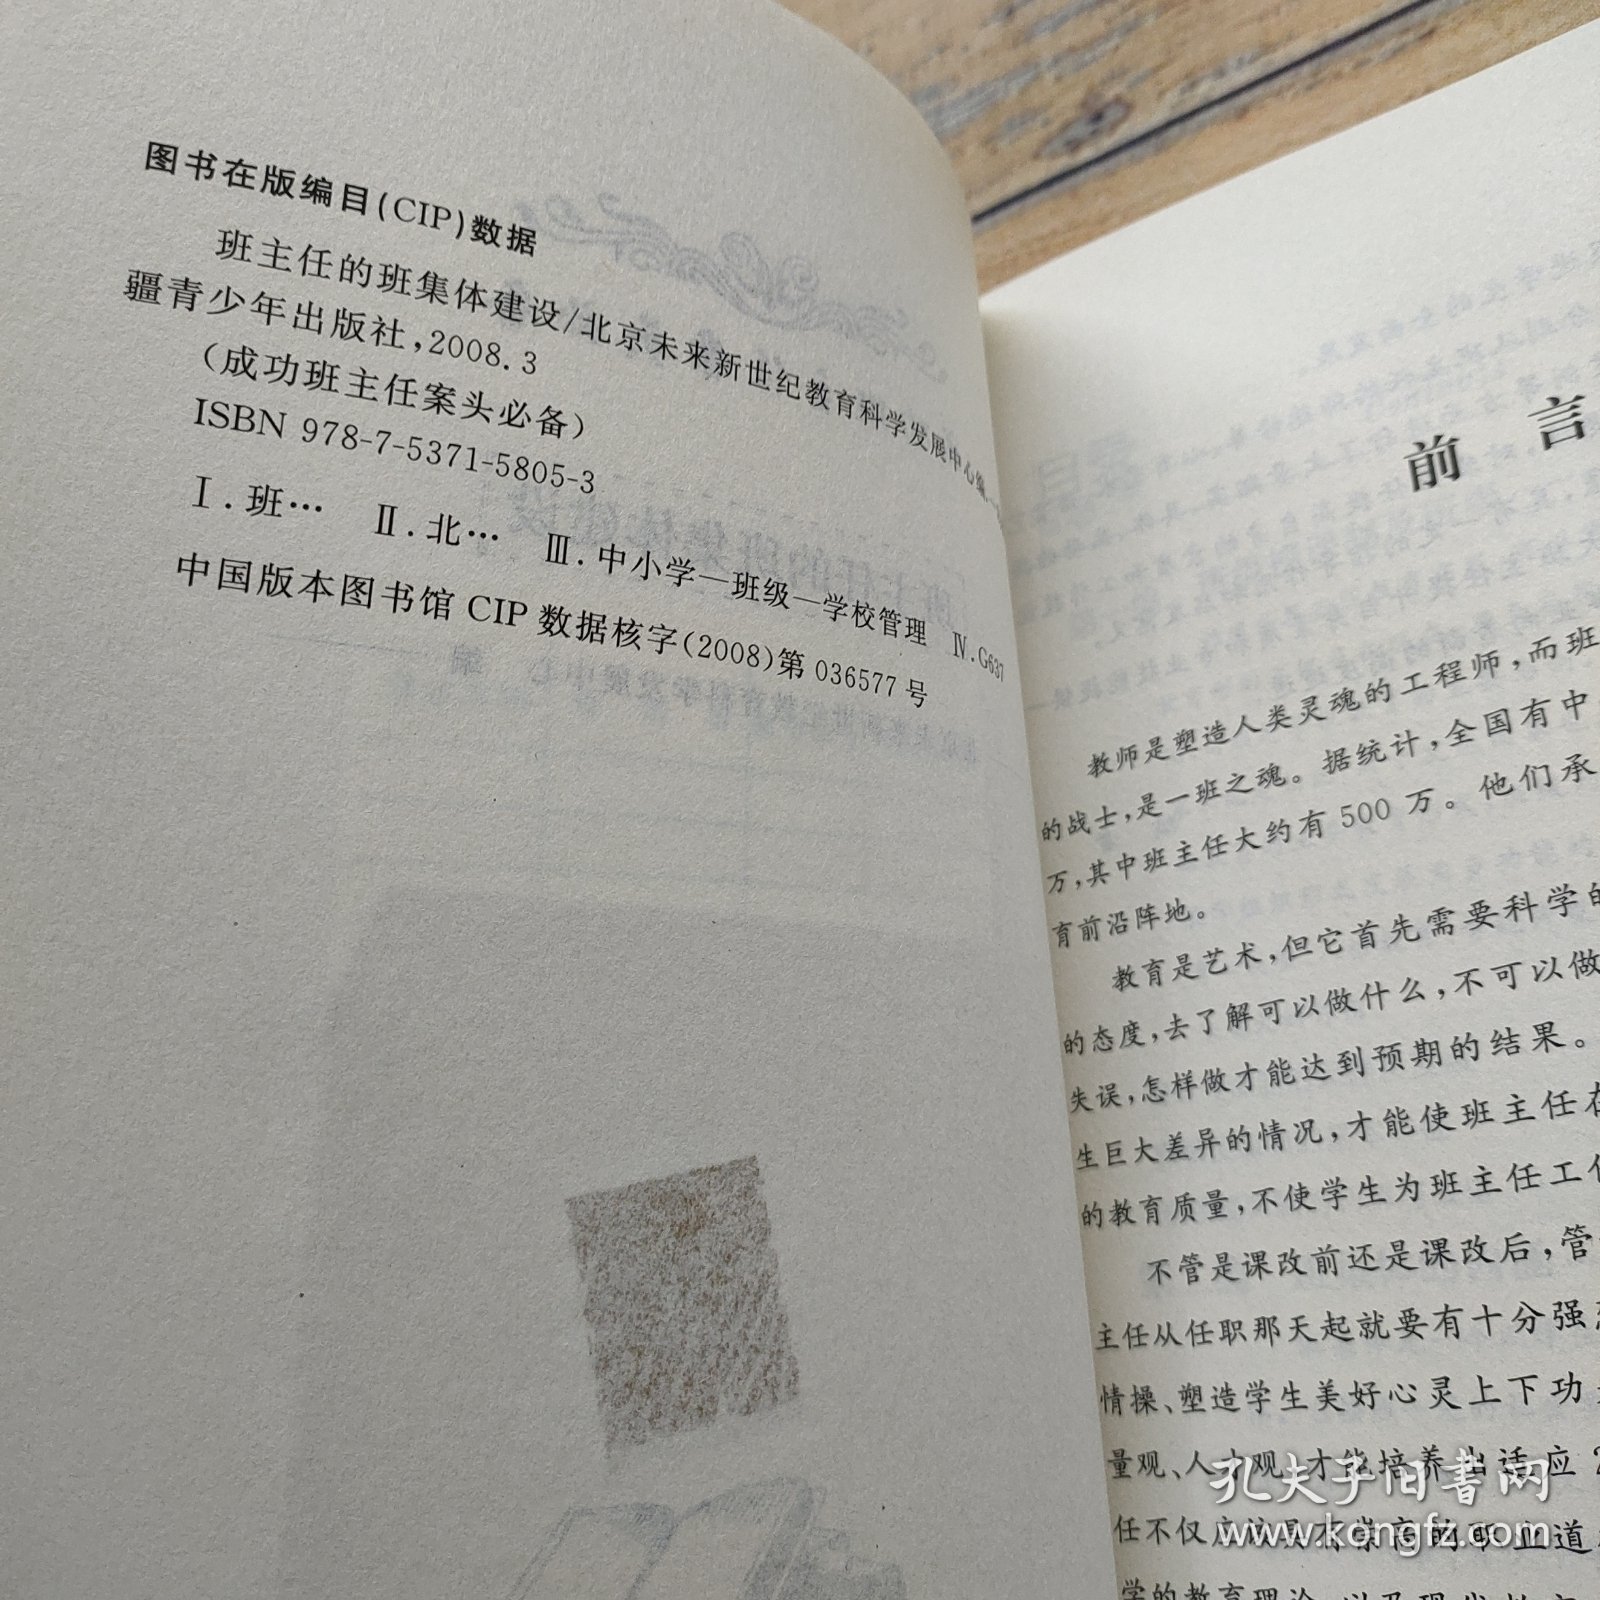 图书在版编目(CIP)数据
班主任的班集体建设/北京未来新世纪教育科学发展中心编.
疆青少年出版社,2008.3
(成功班主任案头必备)
ISBN 978-7-5371-5805-3
Ⅰ.班… Ⅱ.北… Ⅲ.中小学—班级—学校管理 Ⅳ.G637
中国版本图书馆 CIP 数据核字(2008)第 036577 号
前言
教师是塑造人类灵魂的工程师,而班
的战士,是一班之魂。据统计,全国有中
万,其中班主任大约有 500 万。他们承
育前沿阵地。
教育是艺术,但它首先需要科学的
的态度,去了解可以做什么,不可以做
失误,怎样做才能达到预期的结果。
生巨大差异的情况,才能使班主任在
的教育质量,不使学生为班主任工作
不管是课改前还是课改后,管
主任从任职那天起就要有十分强
情操、塑造学生美好心灵上下功
量观、人才观,才能培养出适应 2
任不仅应该具有崇高的职业道
学的教育理论
孔夫子旧书网
www.kongfz.com